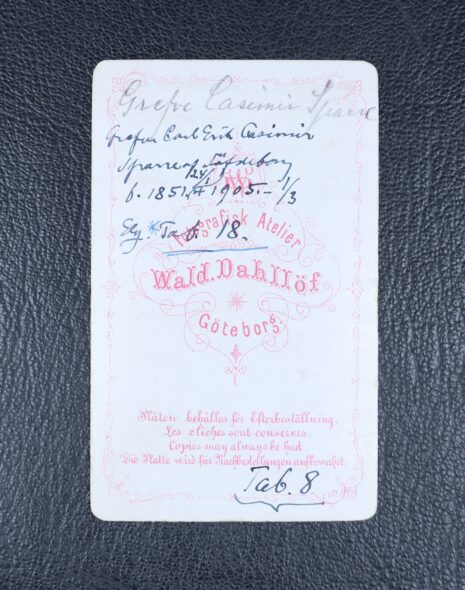 Grefve Casimir Sparre
Grefve Carl Erik Casimir
Sparre af Söfdeborg
f. 1851 24/1 † 1905 1/3
Elg * Tab. 18.
W
Fotografisk Atelier
Wald. Dahllöf
Göteborg.
Plåten behålles för Efterbeställning.
Les cliches sont conserves.
Copies may always be had
Die Platte wird für Nachbestellungen aufbewahrt
Tab. 8